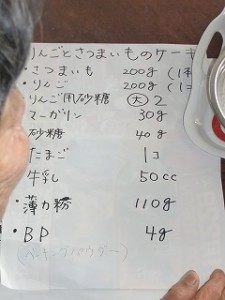 りんごとさつまいものケーキ
・さつまいも 200g (1本
・りんご 200g (1コ
りんご用砂糖 大 2
マーガリン 30g
砂糖 40g
たまご 1コ
牛乳 50cc
・薄力粉 110g
・BP 4g
(ベーキングパウダー)